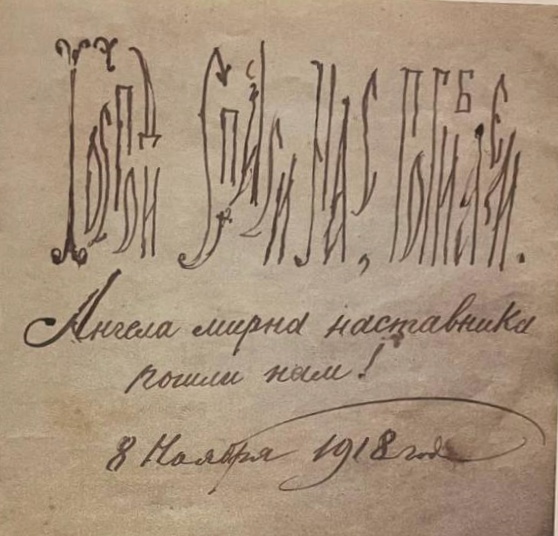 Господи Спаси нас, погибаем.
Ангела мирна наставника
пошли нам!
8 Ноября 1918 года